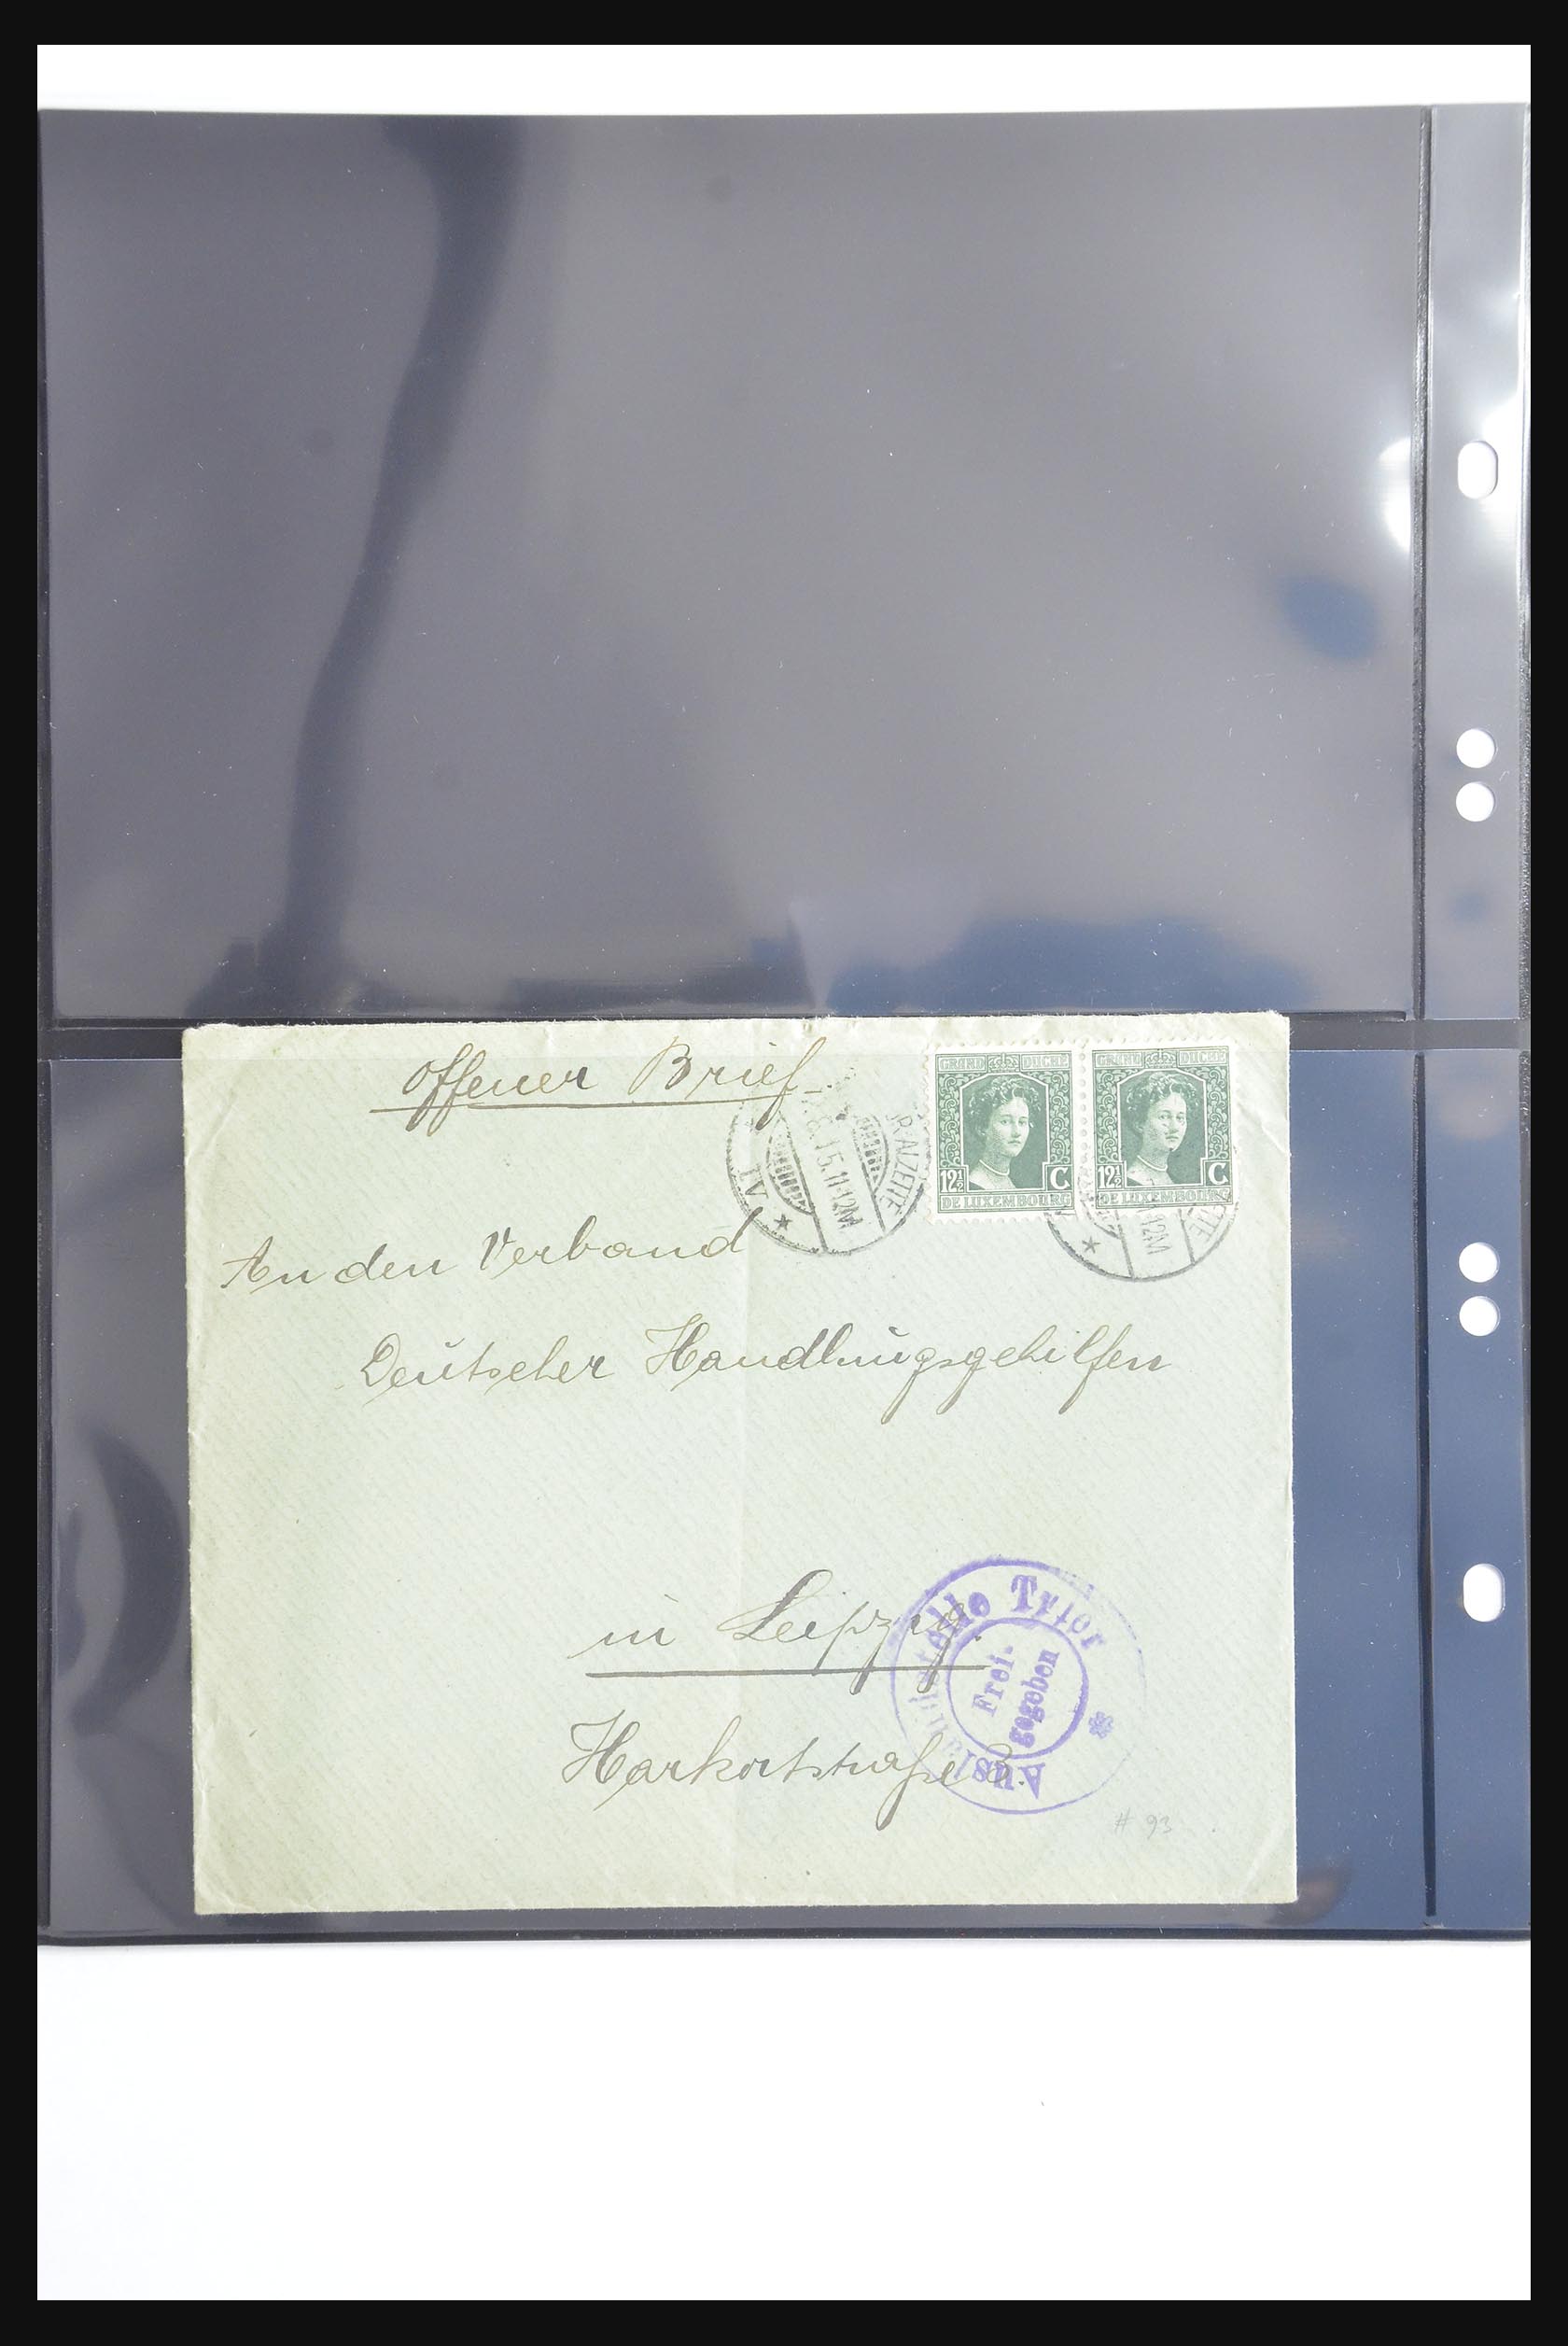 Offener Brief
RALZETTE
15.11-12M
IV *
GRAND DUCHÉ
12½ C
DE LUXEMBOURG
GRAND DUCHÉ
12½ C
DE LUXEMBOURG
12M
TTE
*
An den Verband
Deutscher Handlungsgehilfen
in Leipzig.
Harkortstraße 3.
Auslandstelle Trier
Frei-
gegeben
# 93